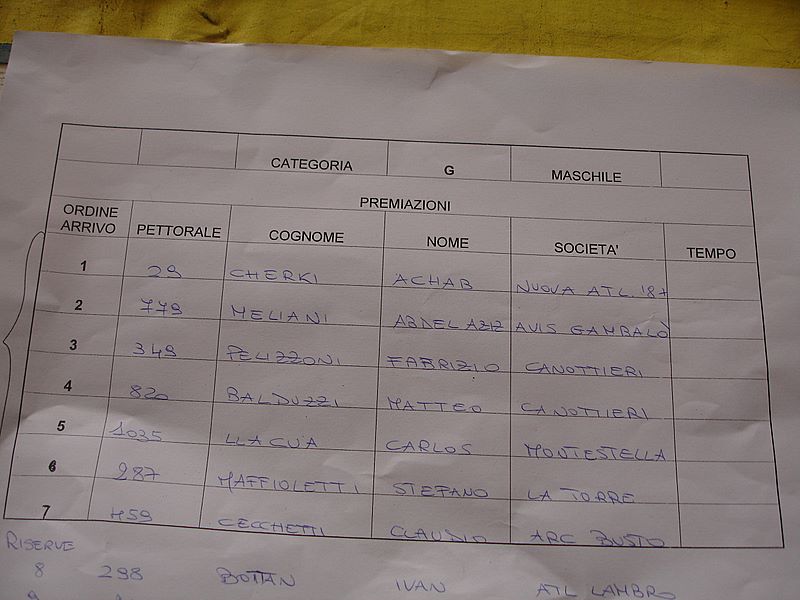 CATEGORIA G MASCHILE
PREMIAZIONI
ORDINE ARRIVO PETTORALE COGNOME NOME SOCIETA' TEMPO
1 29 CHERKI ACHAB NUOVA ATL. '87
2 779 MELIANI ABDEL AZIZ AVIS GAMBALÒ
3 349 PELIZZONI FABRIZIO CANOTTIERI
4 820 BALDUZZI MATTEO CANOTTIERI
5 1035 LLACUA CARLOS MONTESTELLA
6 287 MAFFIOLETTI STEFANO LA TORRE
7 459 CECCHETTI CLAUDIO ARC BUSTO
RISERVE
8 298 BOTTAN IVAN ATL LAMBRO